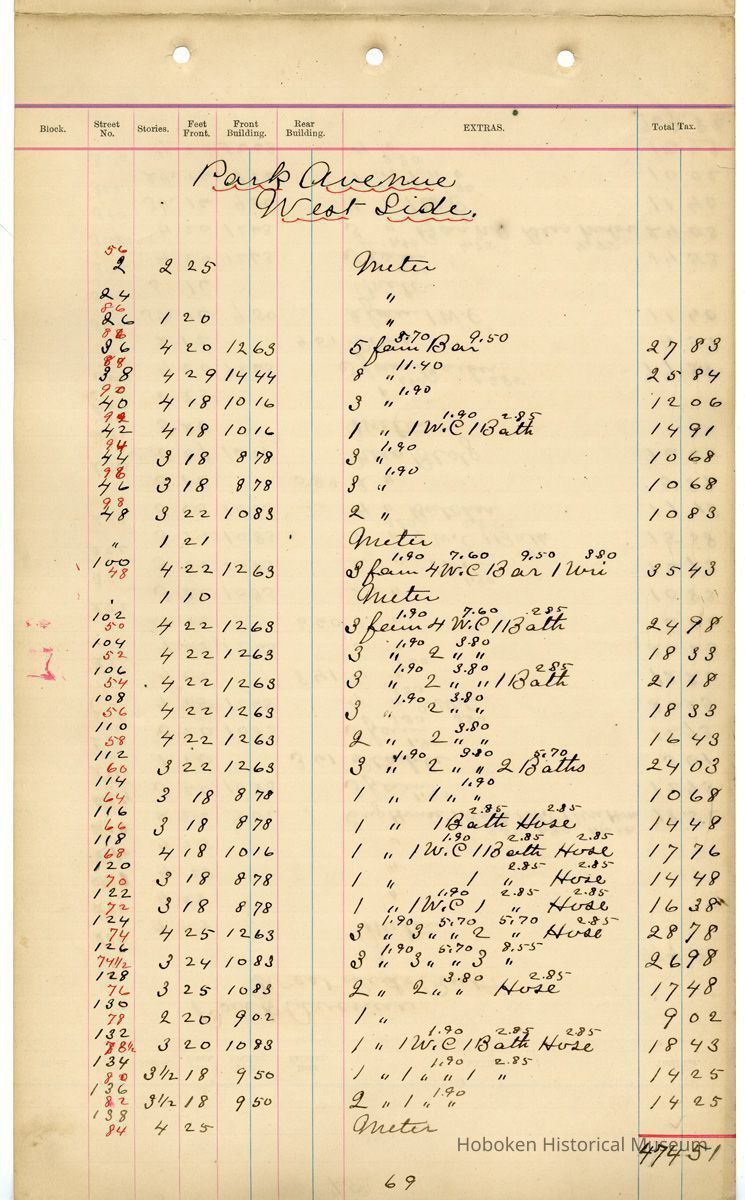 Block. Street No. Stories. Feet Front. Front Building. Rear Building. EXTRAS. Total Tax.
Park Avenue
West Side.
56
2 2 25 Meter
24 "
86
26 1 20 "
86 5.70 9.50
36 4 20 12 63 5 fam Bar 27 83
88 11.40
38 4 29 14 44 8 " 25 84
90 1.90
40 4 18 10 16 3 " 12 06
92 1.90 2.85
42 4 18 10 16 1 " 1 W.C 1 Bath 14 91
94 1.90
44 3 18 8 78 3 " 10 68
96 1.90
46 3 18 8 78 3 " 10 68
98
48 3 22 10 83 2 " 10 83
" 1 21 Meter
100 1.90 7.60 9.50 3 80
48 4 22 12 63 3 fam 4 W.C 1 Bar 1 Uri 35 43
" 1 10 Meter
102 1.90 7.60 2.85
50 4 22 12 63 3 fam 4 W.C 1 Bath 24 98
104 1.90 3.80
52 4 22 12 63 3 " 2 " " 18 33
106 1.90 3.80 2.85
54 4 22 12 63 3 " 2 " " 1 Bath 21 18
108 1.90 3.80
56 4 22 12 63 3 " 2 " " 18 33
110 3.80
58 4 22 12 63 2 " 2 " " 16 43
112 1.90 3.80 5.70
60 3 22 12 63 3 " 2 " " 2 Baths 24 03
114 1.90
64 3 18 8 78 1 " 1 " " 10 68
116 2.85 2.85
66 3 18 8 78 1 " 1 Bath Hose 14 48
118 1.90 2.85 2.85
68 4 18 10 16 1 " 1 W.C 1 Bath Hose 17 76
120 2.85 2.85
70 3 18 8 78 1 " 1 " Hose 14 48
122 1.90 2.85 2.85
72 3 18 8 78 1 " 1 W.C 1 " Hose 16 38
124 1.90 5.70 5.70 2.85
74 4 25 12 63 3 " 3 " " 2 " Hose 28 78
126 1.90 5.70 8.55
74 1/2 3 24 10 83 3 " 3 " " 3 " 26 98
128 3.80 2.85
76 3 25 10 83 2 " 2 " " Hose 17 48
130
78 2 20 9 02 1 " 9 02
132 1.90 2.85 2.85
78 1/2 3 20 10 83 1 " 1 W.C 1 Bath Hose 18 43
134 1.90 2.85
80 3 1/2 18 9 50 1 " 1 " " 1 " 14 25
136 1.90
82 3 1/2 18 9 50 2 " 1 " " 14 25
138
84 4 25 Meter
Hoboken Historical Museum
474 51
69